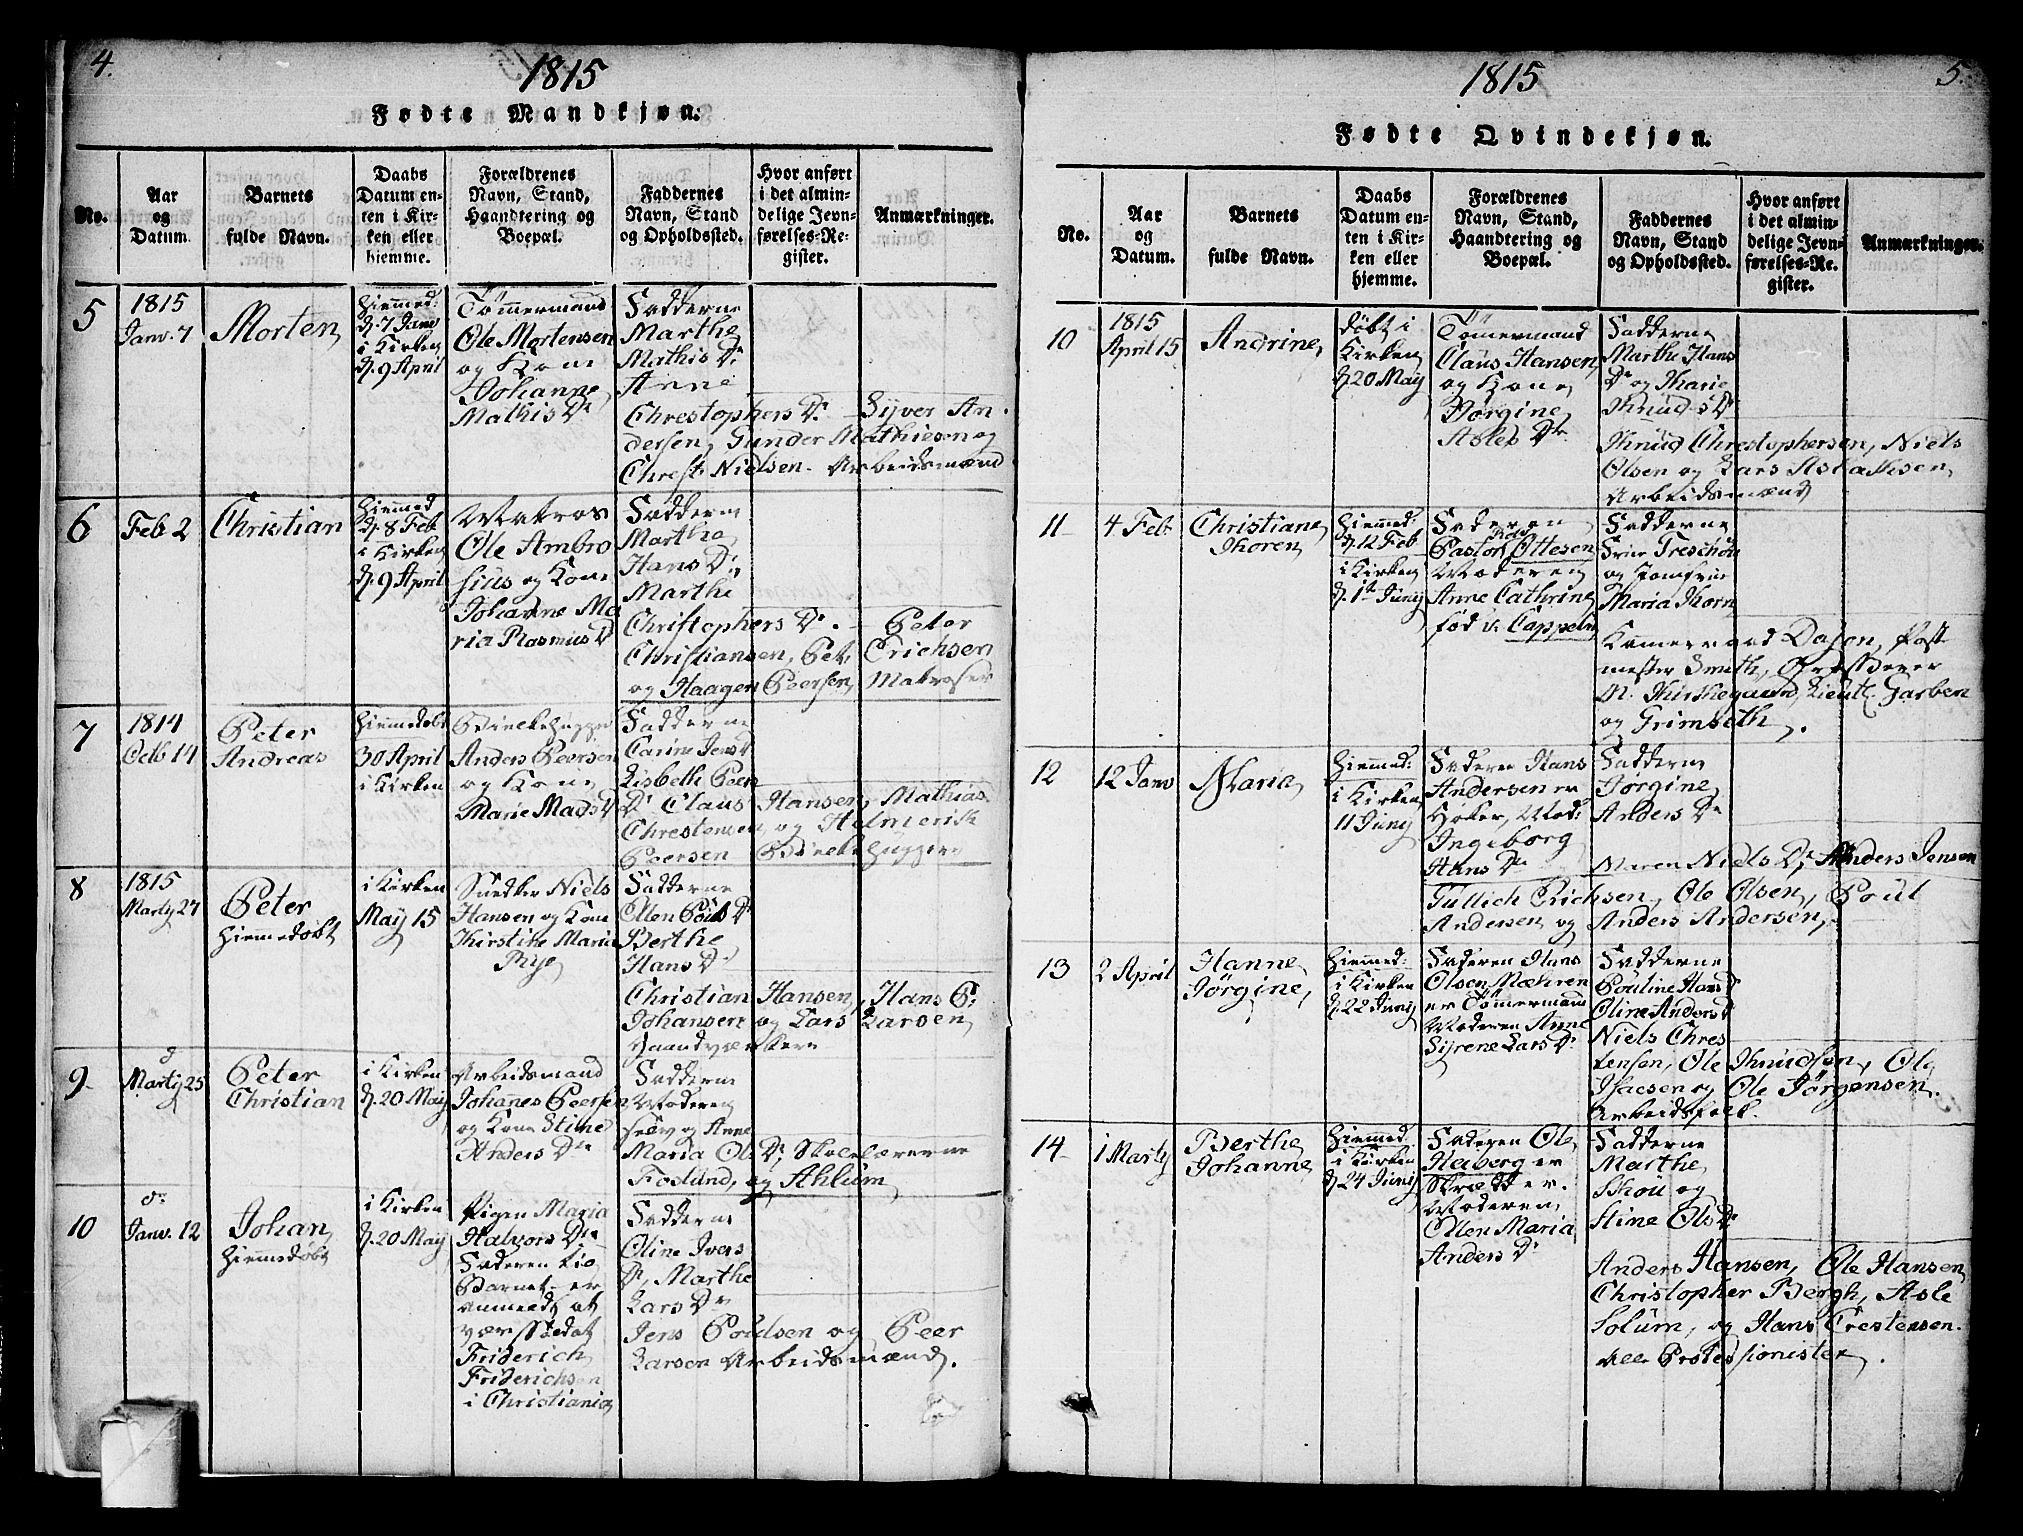 4.
1815
Fødte Mandkjøn.
No.
Aar
og
Datum.
Barnets
fulde Navn.
Daabs
Datum en-
ten i Kir-
ken eller
hjemme.
Forældrenes
Navn, Stand,
Haandtering og
Boepæl.
Faddernes
Navn, Stand
og Opholdssted.
Hvor anført
i det almin-
delige Jevn-
førelses-Re-
gister.
Anmærkninger.
5
1815
Janv. 7
Morten
Hiemmed:
d. 7 Janv
i Kirken
d. 9 April
Tømmermand
Ole Mortensen
og Kone
Johanne
Mathis Dr
Fadderne
Marthe
Mathis Dr
Anne
Chrestophers Dr. Syver An-
dersen, Gunder Mathiesen og
Chrest. Nielsen. Arbeidsmænd
6
Feb 2
Christian
Hiemmed
d. 8 Feb
i Kirken
d. 9 April
Matros
Ole Ambro
sius og Kone
Johanne Ma
ria Rasmus Dr
Fadderne
Marthe
Hans Dr
Marthe
Christophers Dr. Peter
Christiansen, Pet. Erichsen
og Haagen Peersen, Matroser
7
1814
Octb 14
Peter
Andreas
Hiemmedøbt
30 April
i Kirken
Blokkehugger
Anders Peersen
og Kone
Marie Mads Dr
Fadderne
Carine Jens Dr
Lisbeth Peer
Dr Claus Hansen, Mathias
Chrestensen og Helmerik
Peersen Blokkehuggere
8
1815
Martij 27
Peter
Hiemmedøbt
i Kirken
May 15
Snedker Niels
Hansen og Kone
Kirstine Maria
Rye
Fadderne
Ellen Pouls Dr
Berthe
Hans Dr
Christian Hansen, Hans P:
Johansen og Lars Larsen
Haandværkere
9
Martij 25
Peter
Christian
i Kirken
d. 20 May
Arbeidsmand
Johannes Peersen
og Kone Stine
Anders Dr
Fadderne
Moderen
selv og Anne
Maria Ols Dr, Skolelærerne
Foslund, og Ahlum
10
Janv. 12
Johan
Hiemmedøbt
i Kirken
d. 20 May
Pigen Maria
Halvors Dr
Faderen til
Barnet er
anmeldt at
være Soldat
Friderich
Friderichsen
i Christiania
Fadderne
Oline Ivers
Dr, Marthe
Lars Dr
Jens Poulsen og Peer
Larsen Arbeidsmænd.
5.
1815
Fødte Qvindekjøn.
No.
Aar
og
Datum.
Barnets
fulde Navn.
Daabs
Datum en-
ten i Kir-
ken eller
hjemme.
Forældrenes
Navn, Stand,
Haandtering og
Boepæl.
Faddernes
Navn, Stand
og Opholdssted.
Hvor anført
i det almin-
delige Jevn-
førelses-Re-
gister.
Anmærkninger.
10
1815
April 15
Andrine
døbt i
Kirken
d. 20 May
Tømermand
Claus Hansen
og Kone
Jørgine
Asles Dr
Fadderne
Marthe Hans
Dr og Karie
Knuds Dr
Knud Chrestophersen, Niels
Olsen og Lars Aslaksen
Arbeidsmænd
11
4 Feb
Christiane
Thoren
Hiemmed:
d. 12 Feb
i Kirken
d. 1st Juny
Faderen
Pastor Ottesen
Moderen
Anne Cathrine
fød v: Cappeln
Fadderne
Frue Treschou
og Jomfrue
Maria Thorn
Kammerraad Dasen, Post
mester Smith,
N. Kirkegaard, Lieut: Garben
og Grimseth.
12
12 Janv
Maria
Hiemmed:
i Kirken
11 Junij
Faderen Hans
Andersen er
Høker, Mod:
Ingeborg
Hans Dr
Fadderne
Jørgine
Anders Dr
Maren Niels Dr, Anders Jensen
Gullich Erichsen, Ole Olsen, Poul
Andersen og Anders Andersen,
13
2 April
Hanne
Jørgine
Hiemmed:
i Kirken
d. 22 Junij
Faderen Hans
Olsen Mæhren
er Tømermand
Moderen Anne
Syrene Lars Dr
Fadderne
Pouline Hans Dr
Oline Anders Dr
Niels Chres
tensen, Ole Knudsen, Ole
Isacsen og Ole Jørgensen.
Arbeidsfolk.
14
1 Martij
Berthe
Johanne
Hiemmed.
i Kirken
d. 24 Junij
Faderen Ole
Heiberg er
Skrædder.
Moderen
Ellen Maria
Anders Dr
Fadderne
Marthe
Skou og
Stine Ols Dr
Anders Hansen, Ole Hansen
Christopher Bergh, Asle
Solum, og Hans Crestensen.
Alle Profes sionister.